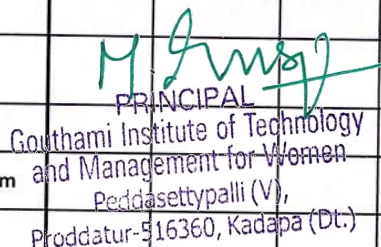 PRINCIPAL
Gouthami Institute of Technology
m and Management for Women
Peddasettypalli (V),
Proddatur-516360, Kadapa (Dt.)